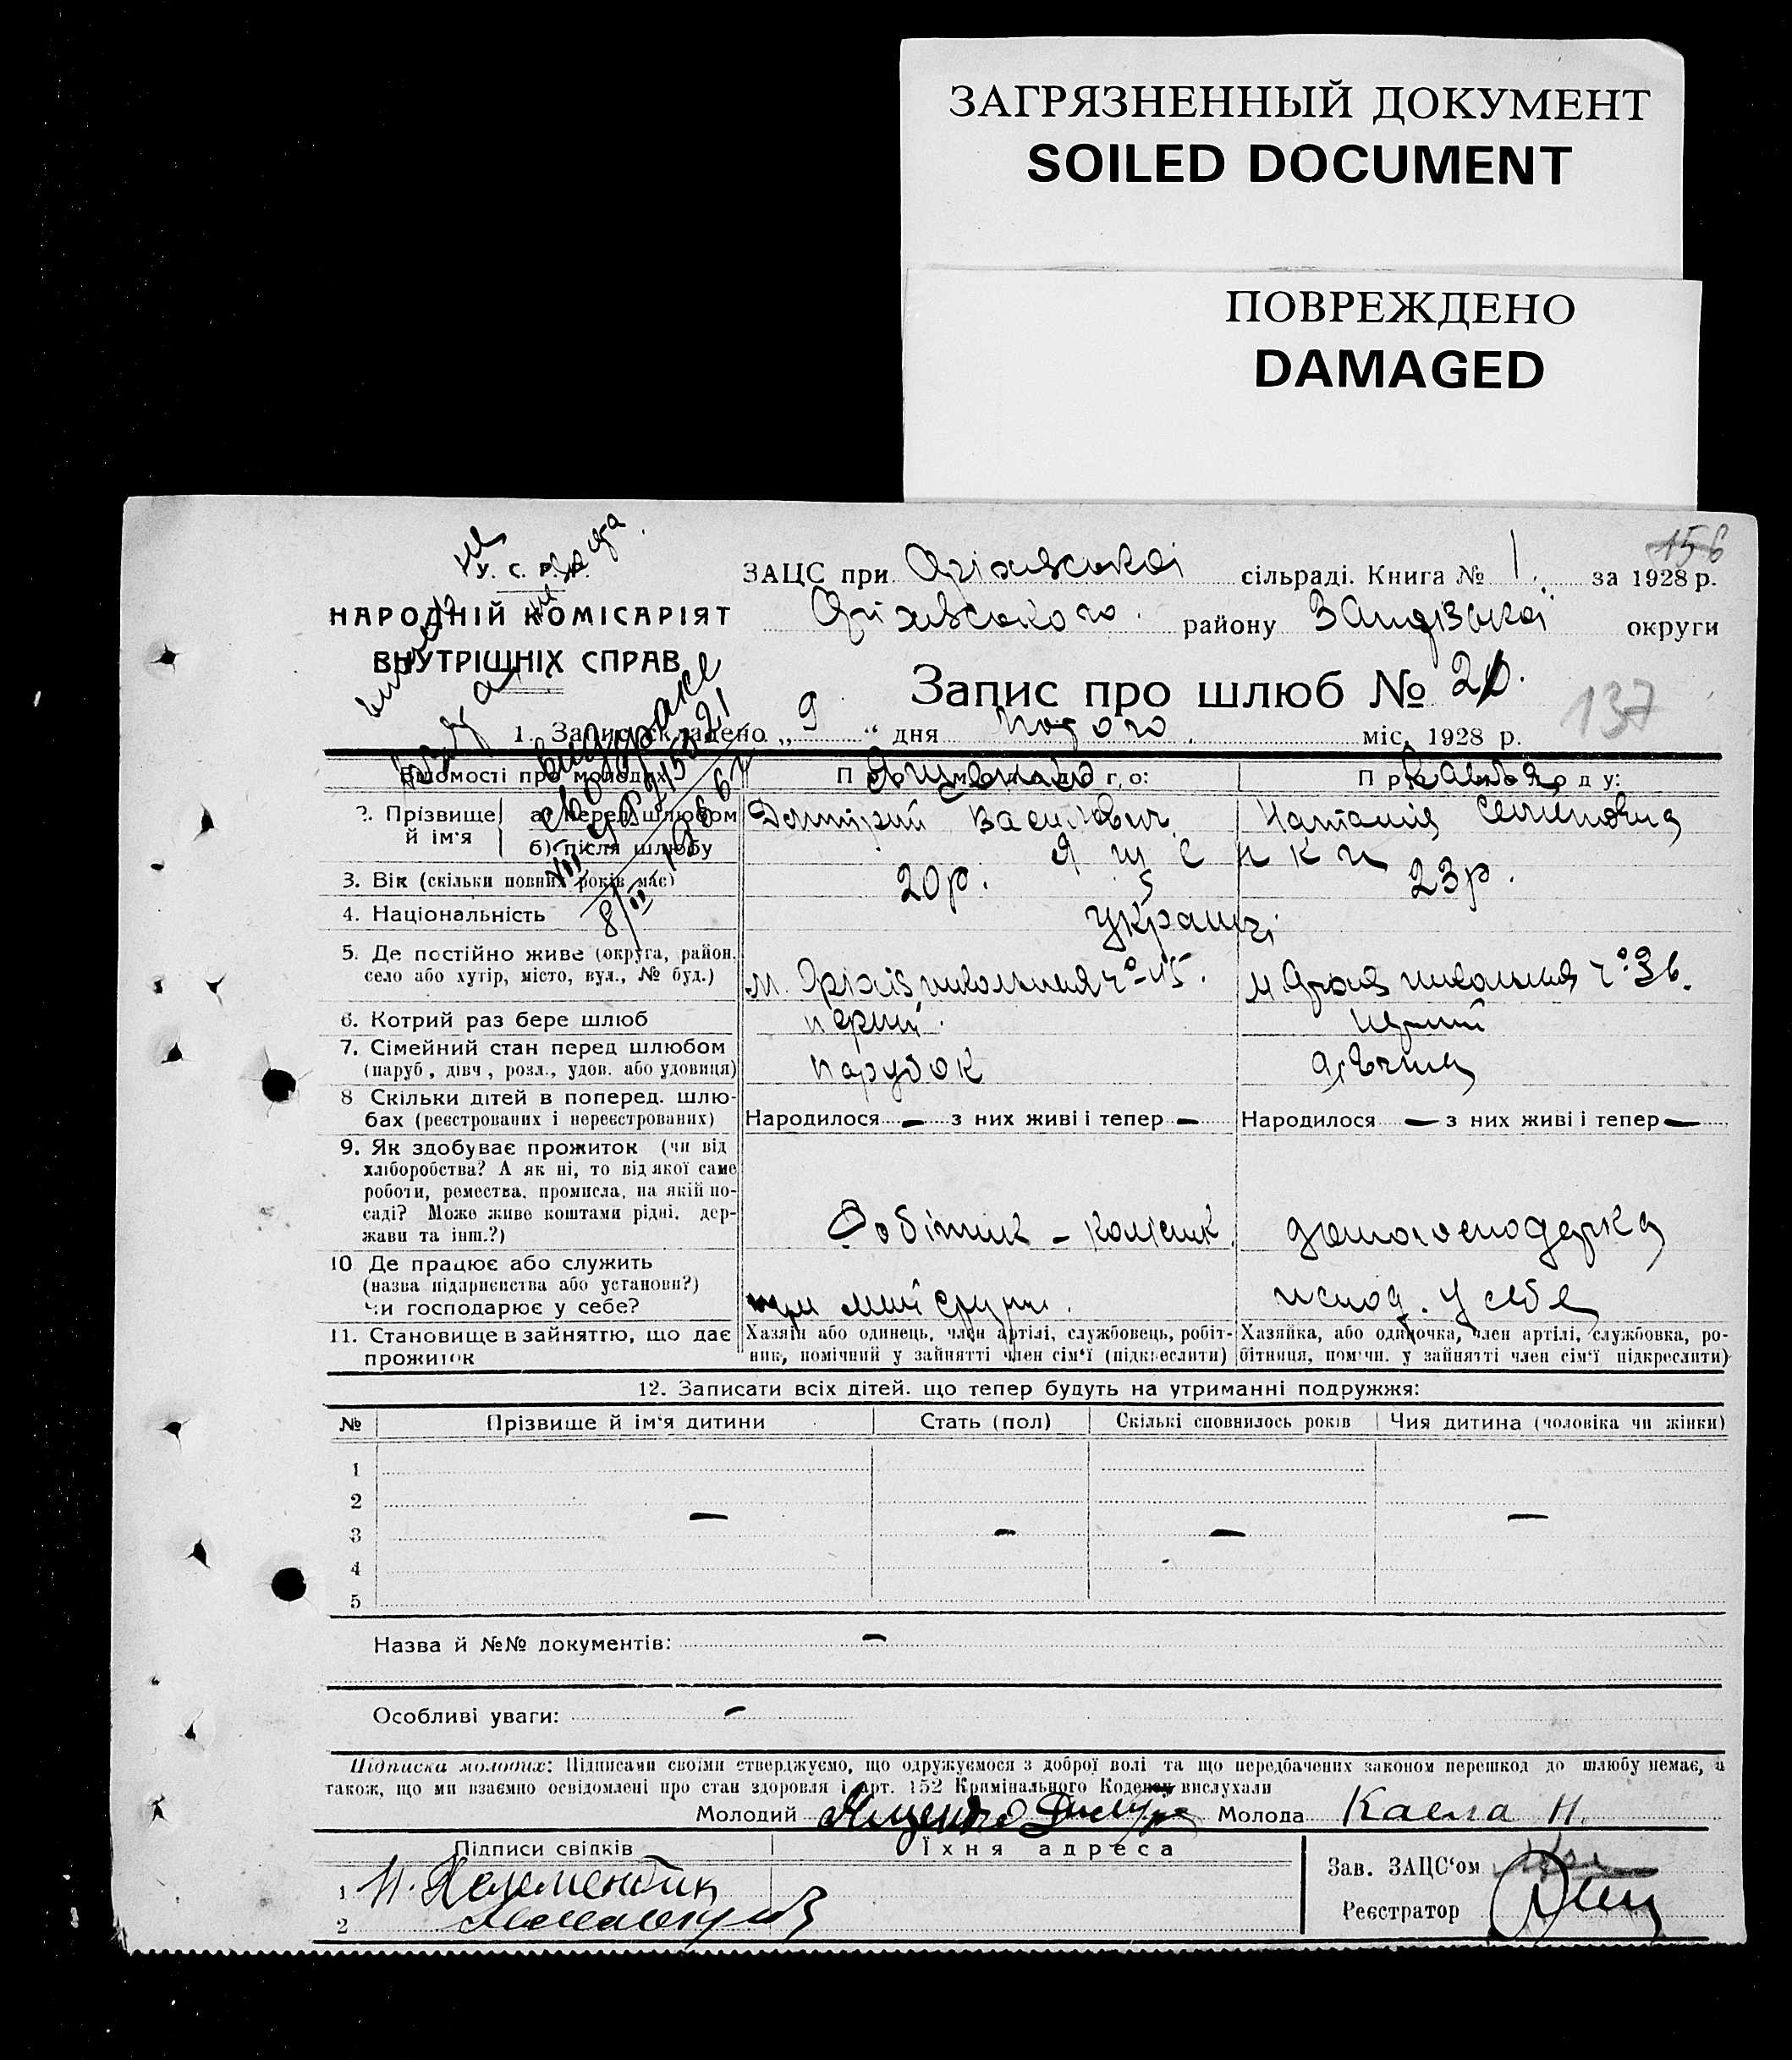 ЗАГРЯЗНЕННЫЙ ДОКУМЕНТ
SOILED DOCUMENT
ПОВРЕЖДЕНО
DAMAGED
156
У. С. Р. Р.
НАРОДНІЙ КОМІСАРІЯТ
ВНУТРІШНІХ СПРАВ
ЗАЦС при Оріхівської сільраді. Книга № 1. за 1928 р.
Оріхівського району Запорізької округи
Запис про шлюб № 20.
137
1. Запис складено „ 9 “ дня лютого міс. 1928 р.
Відомості про молодих
Про молодого:
Про молоду:
Ященко
2. Прізвище й ім'я
а) перед шлюбом
Дмитрий Василович
Наталія Семеновна
б) після шлюбу
Ященки
3. Вік (скільки повних років має)
20 р.
23 р.
4. Національність
українці
5. Де постійно живе (округа, район,
село або хутір, місто, вул., № буд.)
м. Оріхів школьная № 15.
м. Оріхів школьная № 36.
6. Котрий раз бере шлюб
перший.
перший
7. Сімейний стан перед шлюбом
(паруб., дівч., розл., удов. або удовиця)
парубок
дівчина
8 Скільки дітей в поперед. шлю-
бах (реєстрованих і нереєстрованих)
Народилося — з них живі і тепер —
Народилося — з них живі і тепер —
9. Як здобуває прожиток (чи від
хліборобства? А як ні, то від якої саме
роботи, ремества, промисла, на якій по-
саді? Може живе коштами рідні, дер-
жави та інш.?)
Робітник -
домогосподарка
10 Де працює або служить
(назва підприємства або установи?)
чи господарює у себе?
господ. у себе
11. Становище в зайняттю, що дає
прожиток
Хазяїн або одинець, член артілі, службовець, робіт-
ник, помічний у зайнятті член сім'ї (підкреслити)
Хазяйка, або одиночка, член артілі, службовка, ро-
бітниця, пом'чн. у зайнятті член сім'ї підкреслити)
12. Записати всіх дітей. що тепер будуть на утриманні подружжя:
№ Прізвище й ім'я дитини Стать (пол) Скількі сповнилось років Чия дитина (чоловіка чи жінки)
1
2
3 — — — —
4
5
Назва й №№ документів: —
Особливі уваги: —
Підписка молодих: Підписами своїми стверджуємо, що одружуємося з доброї волі та що передбачених законом перешкод до шлюбу немає, а
також, що ми взаємно освідомлені про стан здоровля і арт. 152 Кримінального Кодексу вислухали
Молодий Ященко Молода Н.
Підписи свідків
Їхня адреса
1
2
Зав. ЗАЦС'ом
Реєстратор